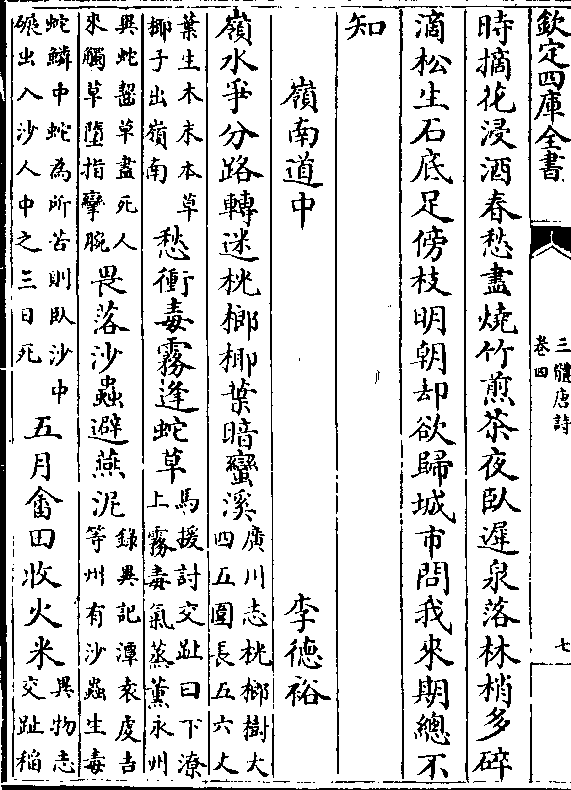 欽定四庫全書 三體唐詩 卷四 七
時摘花浸酒春愁盡燒竹煎茶夜臥遲泉落林梢多碎
滴松生石底足傍枝明朝却欲歸城市問我來期總不
知
嶺南道中 李德裕
嶺水爭分路轉迷桄榔椰葉暗蠻溪 廣川志桄榔樹大四五圍長五六丈
葉生木末本草椰子出嶺南 愁衝毒霧逢蛇草 馬援討交趾曰下潦上霧毒氣蒸薰永州
異蛇齧草盡死人來觸草墮指攣腕 畏落沙蟲避燕泥 錄異記潭袁處吉等州有沙蟲生毒
蛇鱗中蛇為所苦則臥沙中碾出入沙人中之三日死 五月畬田收火米 異物志交趾稻